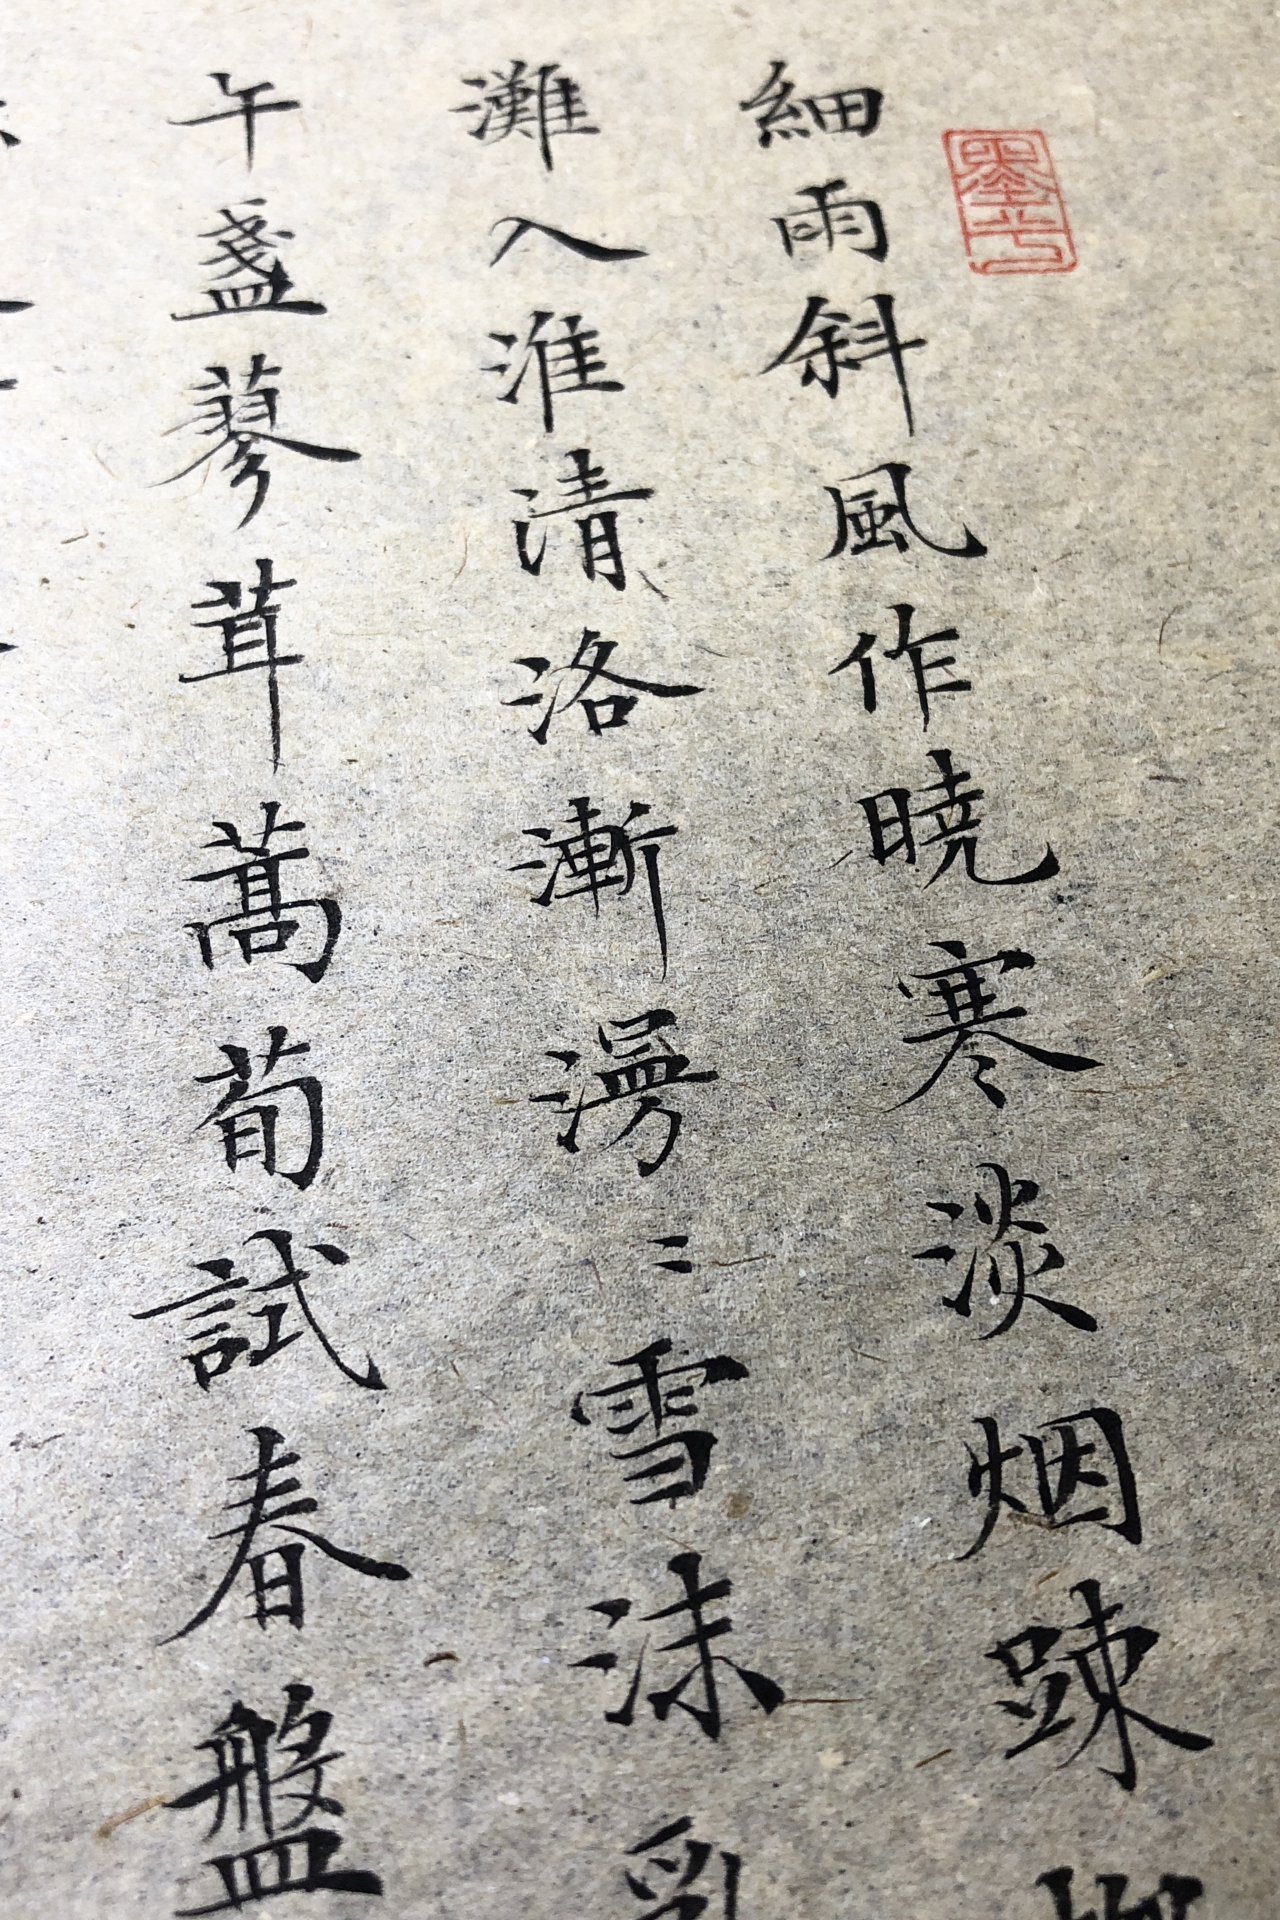 細雨斜風作曉寒淡烟踈
灘入淮清洛漸漫〻雪沫乳
午盞蓼茸蒿荀試春盤